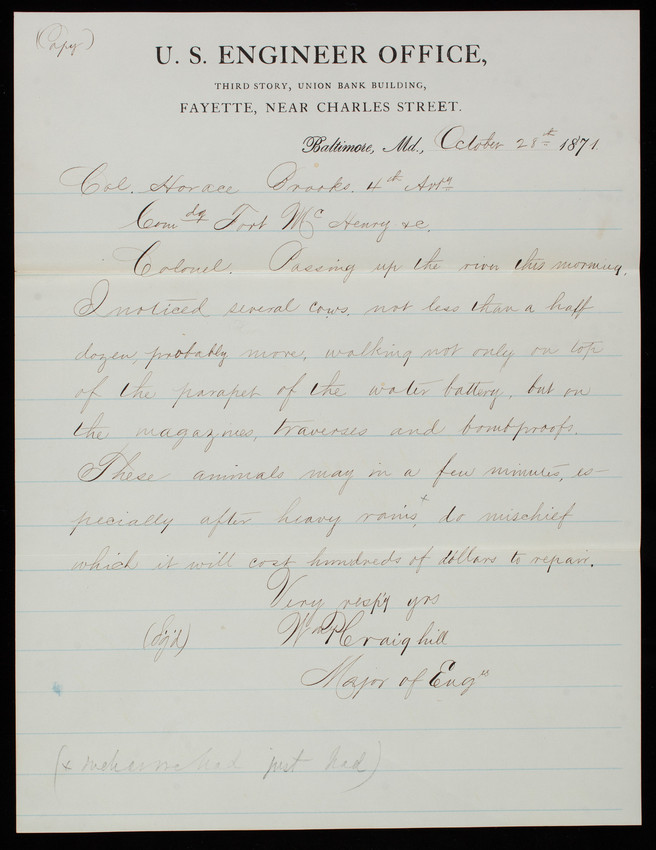 (Copy)
U. S. ENGINEER OFFICE,
THIRD STORY, UNION BANK BUILDING,
FAYETTE, NEAR CHARLES STREET.
Baltimore, Md., October 28th 1871
Col. Horace Brooks. 4th Arty
Comdg Fort McHenry &c.
Colonel. Passing up the river this morning,
I noticed several cows, not less than a half
dozen, probably more, walking not only on top
of the parapet of the water battery, but on
the magazines, traverses and bombproofs.
These animals may in a few minutes, es-
pecially after heavy rains+, do mischief
which it will cost hundreds of dollars to repair.
Very resp'y yrs
(Sg'd) Wm P Craighill
Major of Engrs
(+ which we had just had)